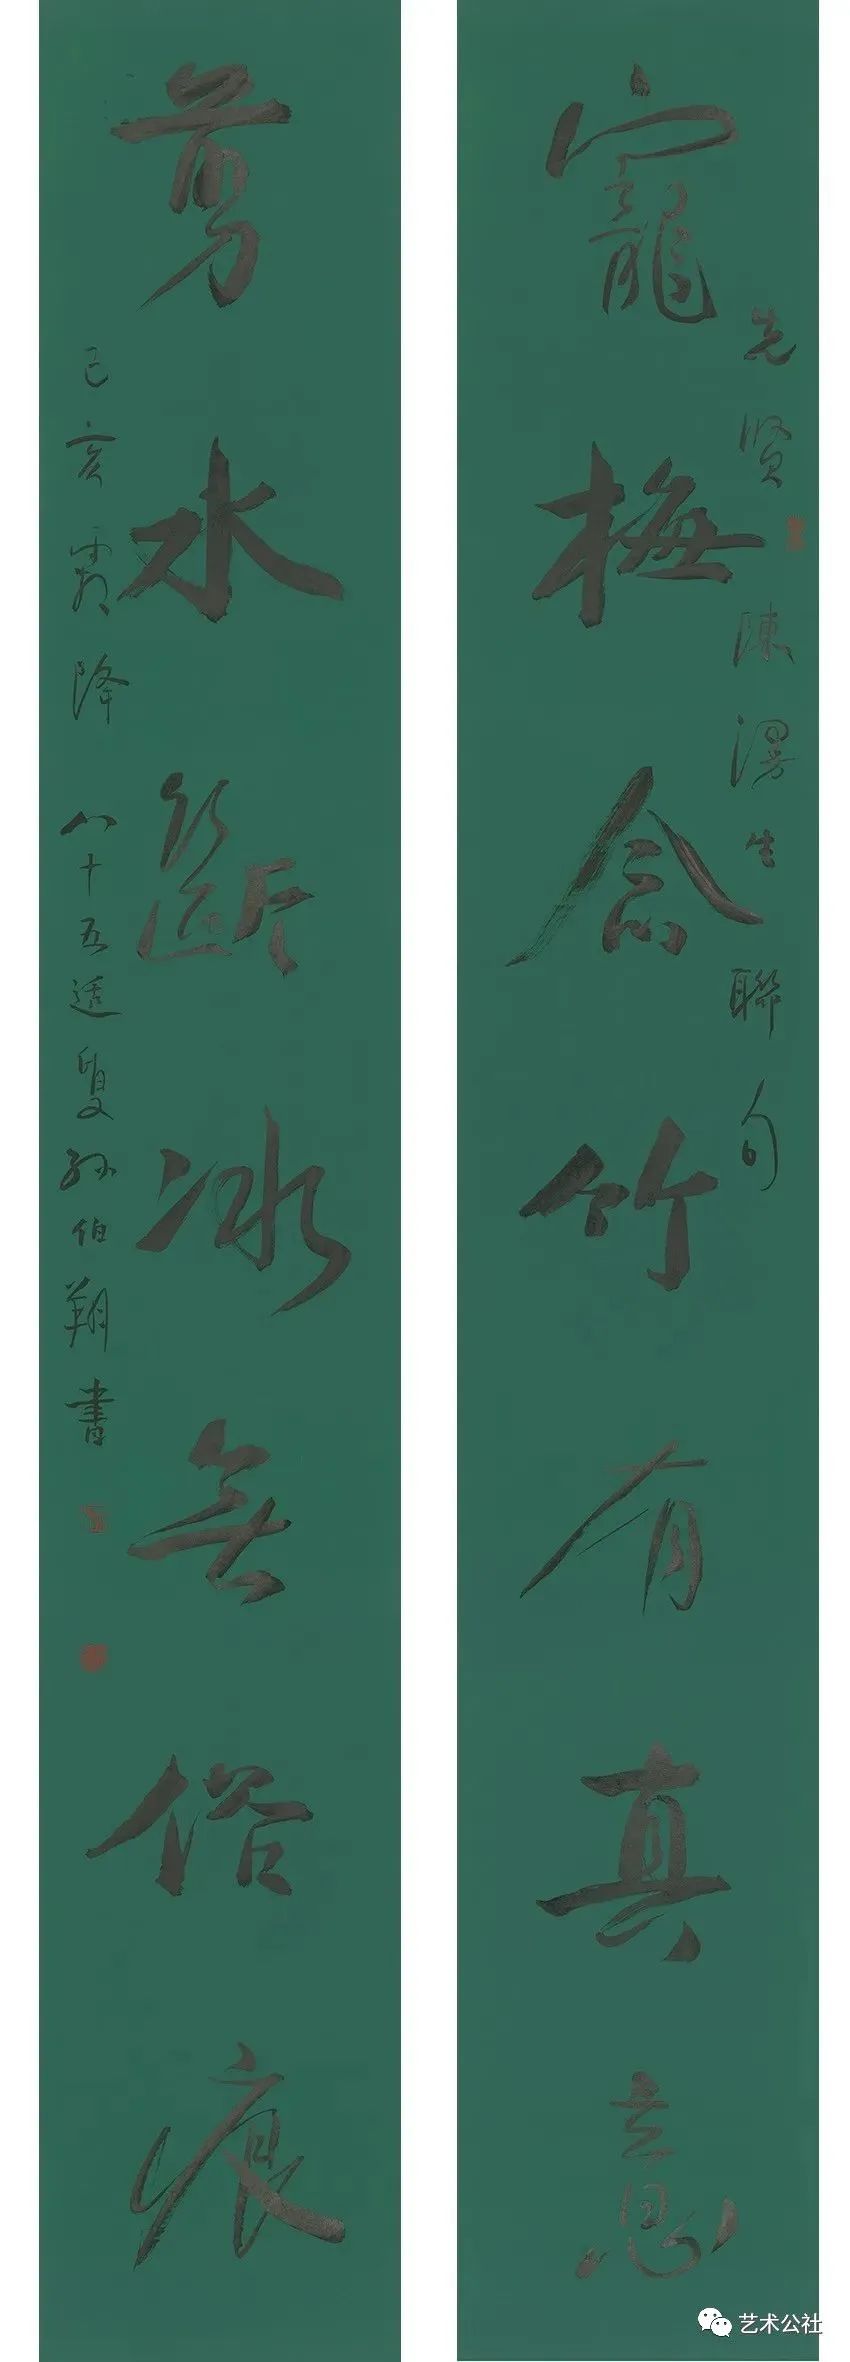 先賢陳漫生聯句
寵梅念竹有真意
剪水斷冰無俗痕
己亥霜降 八十五适叟孫伯翔書
艺术公社